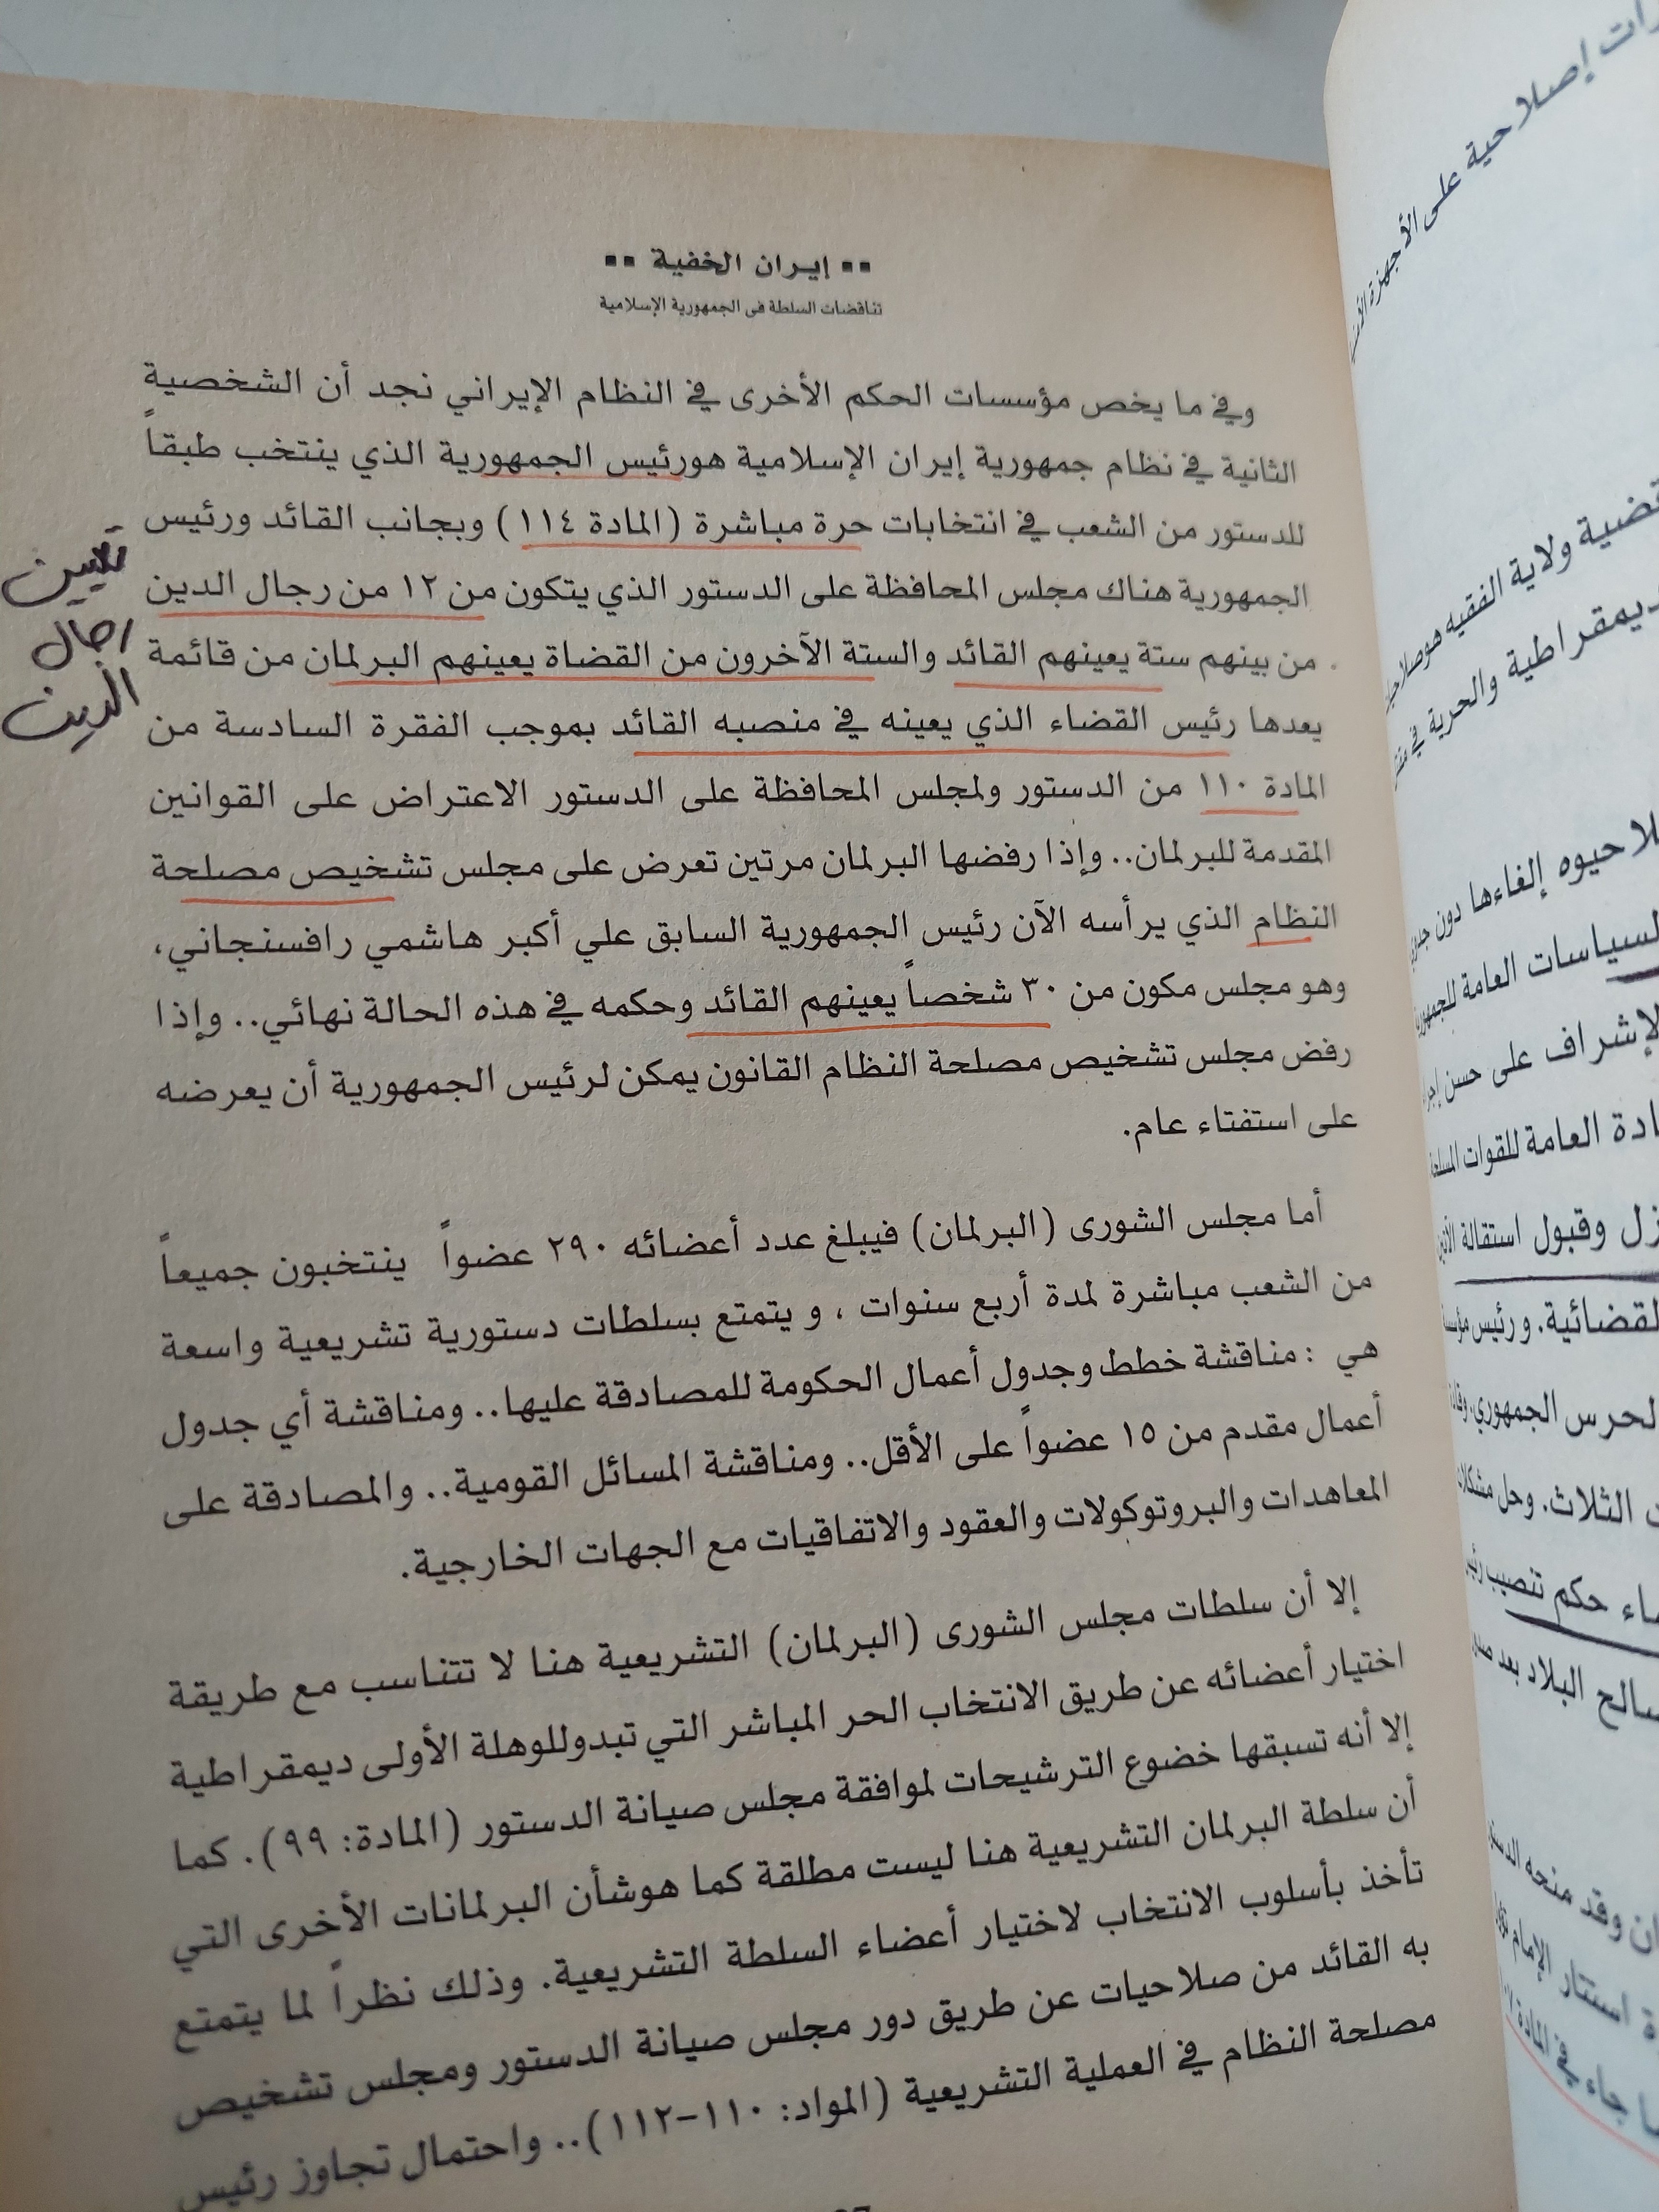 ▪▪ إيران الخفية ▪▪
تناقضات السلطة في الجمهورية الإسلامية
وفي ما يخص مؤسسات الحكم الأخرى في النظام الإيراني نجد أن الشخصية
الثانية في نظام جمهورية إيران الإسلامية هورئيس الجمهورية الذي ينتخب طبقاً
للدستور من الشعب في انتخابات حرة مباشرة (المادة ١١٤) وبجانب القائد ورئيس
الجمهورية هناك مجلس المحافظة على الدستور الذي يتكون من ١٢ من رجال الدين
من بينهم ستة يعينهم القائد والستة الآخرون من القضاة يعينهم البرلمان من قائمة
يعدها رئيس القضاء الذي يعينه في منصبه القائد بموجب الفقرة السادسة من
المادة ١١٠ من الدستور ولمجلس المحافظة على الدستور الاعتراض على القوانين
المقدمة للبرلمان.. وإذا رفضها البرلمان مرتين تعرض على مجلس تشخيص مصلحة
النظام الذي يرأسه الآن رئيس الجمهورية السابق علي أكبر هاشمي رافسنجاني،
وهو مجلس مكون من ٣٠ شخصاً يعينهم القائد وحكمه في هذه الحالة نهائي.. وإذا
رفض مجلس تشخيص مصلحة النظام القانون يمكن لرئيس الجمهورية أن يعرضه
على استفتاء عام.
أما مجلس الشورى (البرلمان) فيبلغ عدد أعضائه ٢٩٠ عضواً ينتخبون جميعاً
من الشعب مباشرة لمدة أربع سنوات ، و يتمتع بسلطات دستورية تشريعية واسعة
هي : مناقشة خطط وجدول أعمال الحكومة للمصادقة عليها.. ومناقشة أي جدول
أعمال مقدم من ١٥ عضواً على الأقل.. ومناقشة المسائل القومية.. والمصادقة على
المعاهدات والبروتوكولات والعقود والاتفاقيات مع الجهات الخارجية.
إلا أن سلطات مجلس الشورى (البرلمان) التشريعية هنا لا تتناسب مع طريقة
اختيار أعضائه عن طريق الانتخاب الحر المباشر التي تبدوللوهلة الأولى ديمقراطية
إلا أنه تسبقها خضوع الترشيحات لموافقة مجلس صيانة الدستور (المادة: ٩٩). كما
أن سلطة البرلمان التشريعية هنا ليست مطلقة كما هوشأن البرلمانات الأخرى التي
تأخذ بأسلوب الانتخاب لاختيار أعضاء السلطة التشريعية. وذلك نظراً لما يتمتع
به القائد من صلاحيات عن طريق دور مجلس صيانة الدستور ومجلس تشخيص
مصلحة النظام في العملية التشريعية (المواد: ١١٠-١١٢).. واحتمال تجاوز رئيس
تعيين
رجال
الدين
إصلاحية على الأجهزة
قضية ولاية الفقيه
والحرية في
إلغاءها دون
السياسات العامة
الإشراف على حسن
العامة للقوات المسلحة
وقبول استقالة
القضائية. ورئيس
الحرس الجمهوري
الثلاث. وحل
حكم تنصيب
البلاد بعد
وقد منحه
استتار الإمام
جاء في المادة